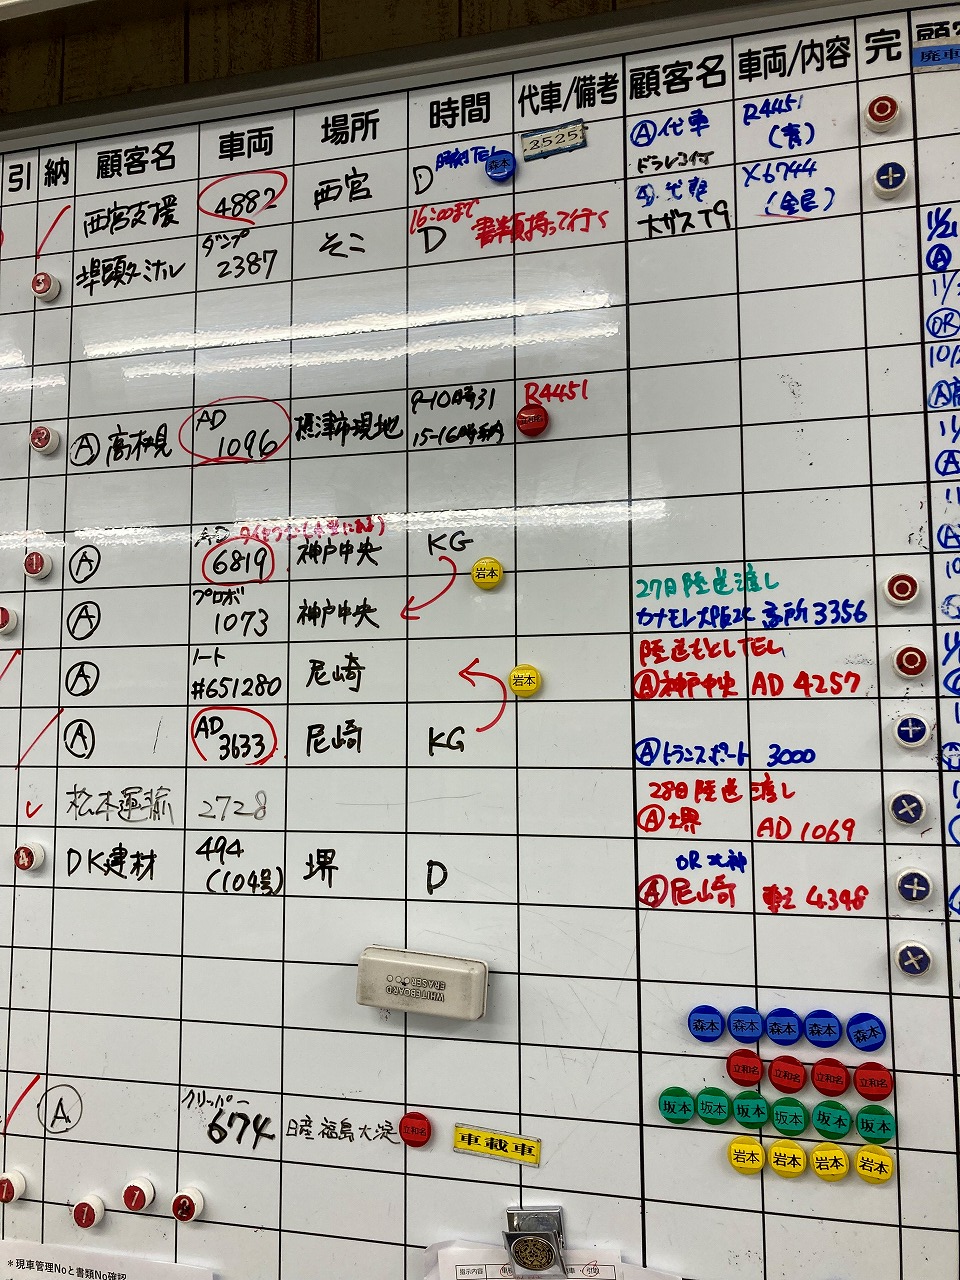 引 納 顧客名 車両 場所 時間 代車/備考 顧客名 車両/内容 完
廃車
西宮支援 4882 西宮 D TEL 森本 2525
Ⓐ代車 R4451
(青)
ドラレコ付
ダンプ
2387 そこ 16:00まで
D 持って行く
Ⓐ代車 X6744
大ガスT9
3
2 Ⓐ AD
1096 摂津市現地 9-10時
15-16時 R4451
1 Ⓐ AD
6819 神戸中央 KG 岩本
Ⓐ プロボ
1073 神戸中央
27日陸送渡し
3356
Ⓐ ノート
#651280 尼崎 岩本
陸送もどしTEL
Ⓐ神戸中央 AD 4257
Ⓐ AD
3633 尼崎 KG
Ⓐトランスポート 3000
松本運輸 2728
28日陸送渡し
Ⓐ堺 AD 1069
4 DK建材 494
(104号) 堺 D
OR 北神
Ⓐ尼崎 軽 4398
WHITEBOARD
ERASER
森本 森本 森本 森本 森本
立和名 立和名 立和名 立和名
坂本 坂本 坂本 坂本 坂本 坂本
岩本 岩本 岩本 岩本
Ⓐ クリッパー
674 日産福島大淀 立和名 車載車
1 1 1 2
＊現車管理Noと書類No確認
指示内容